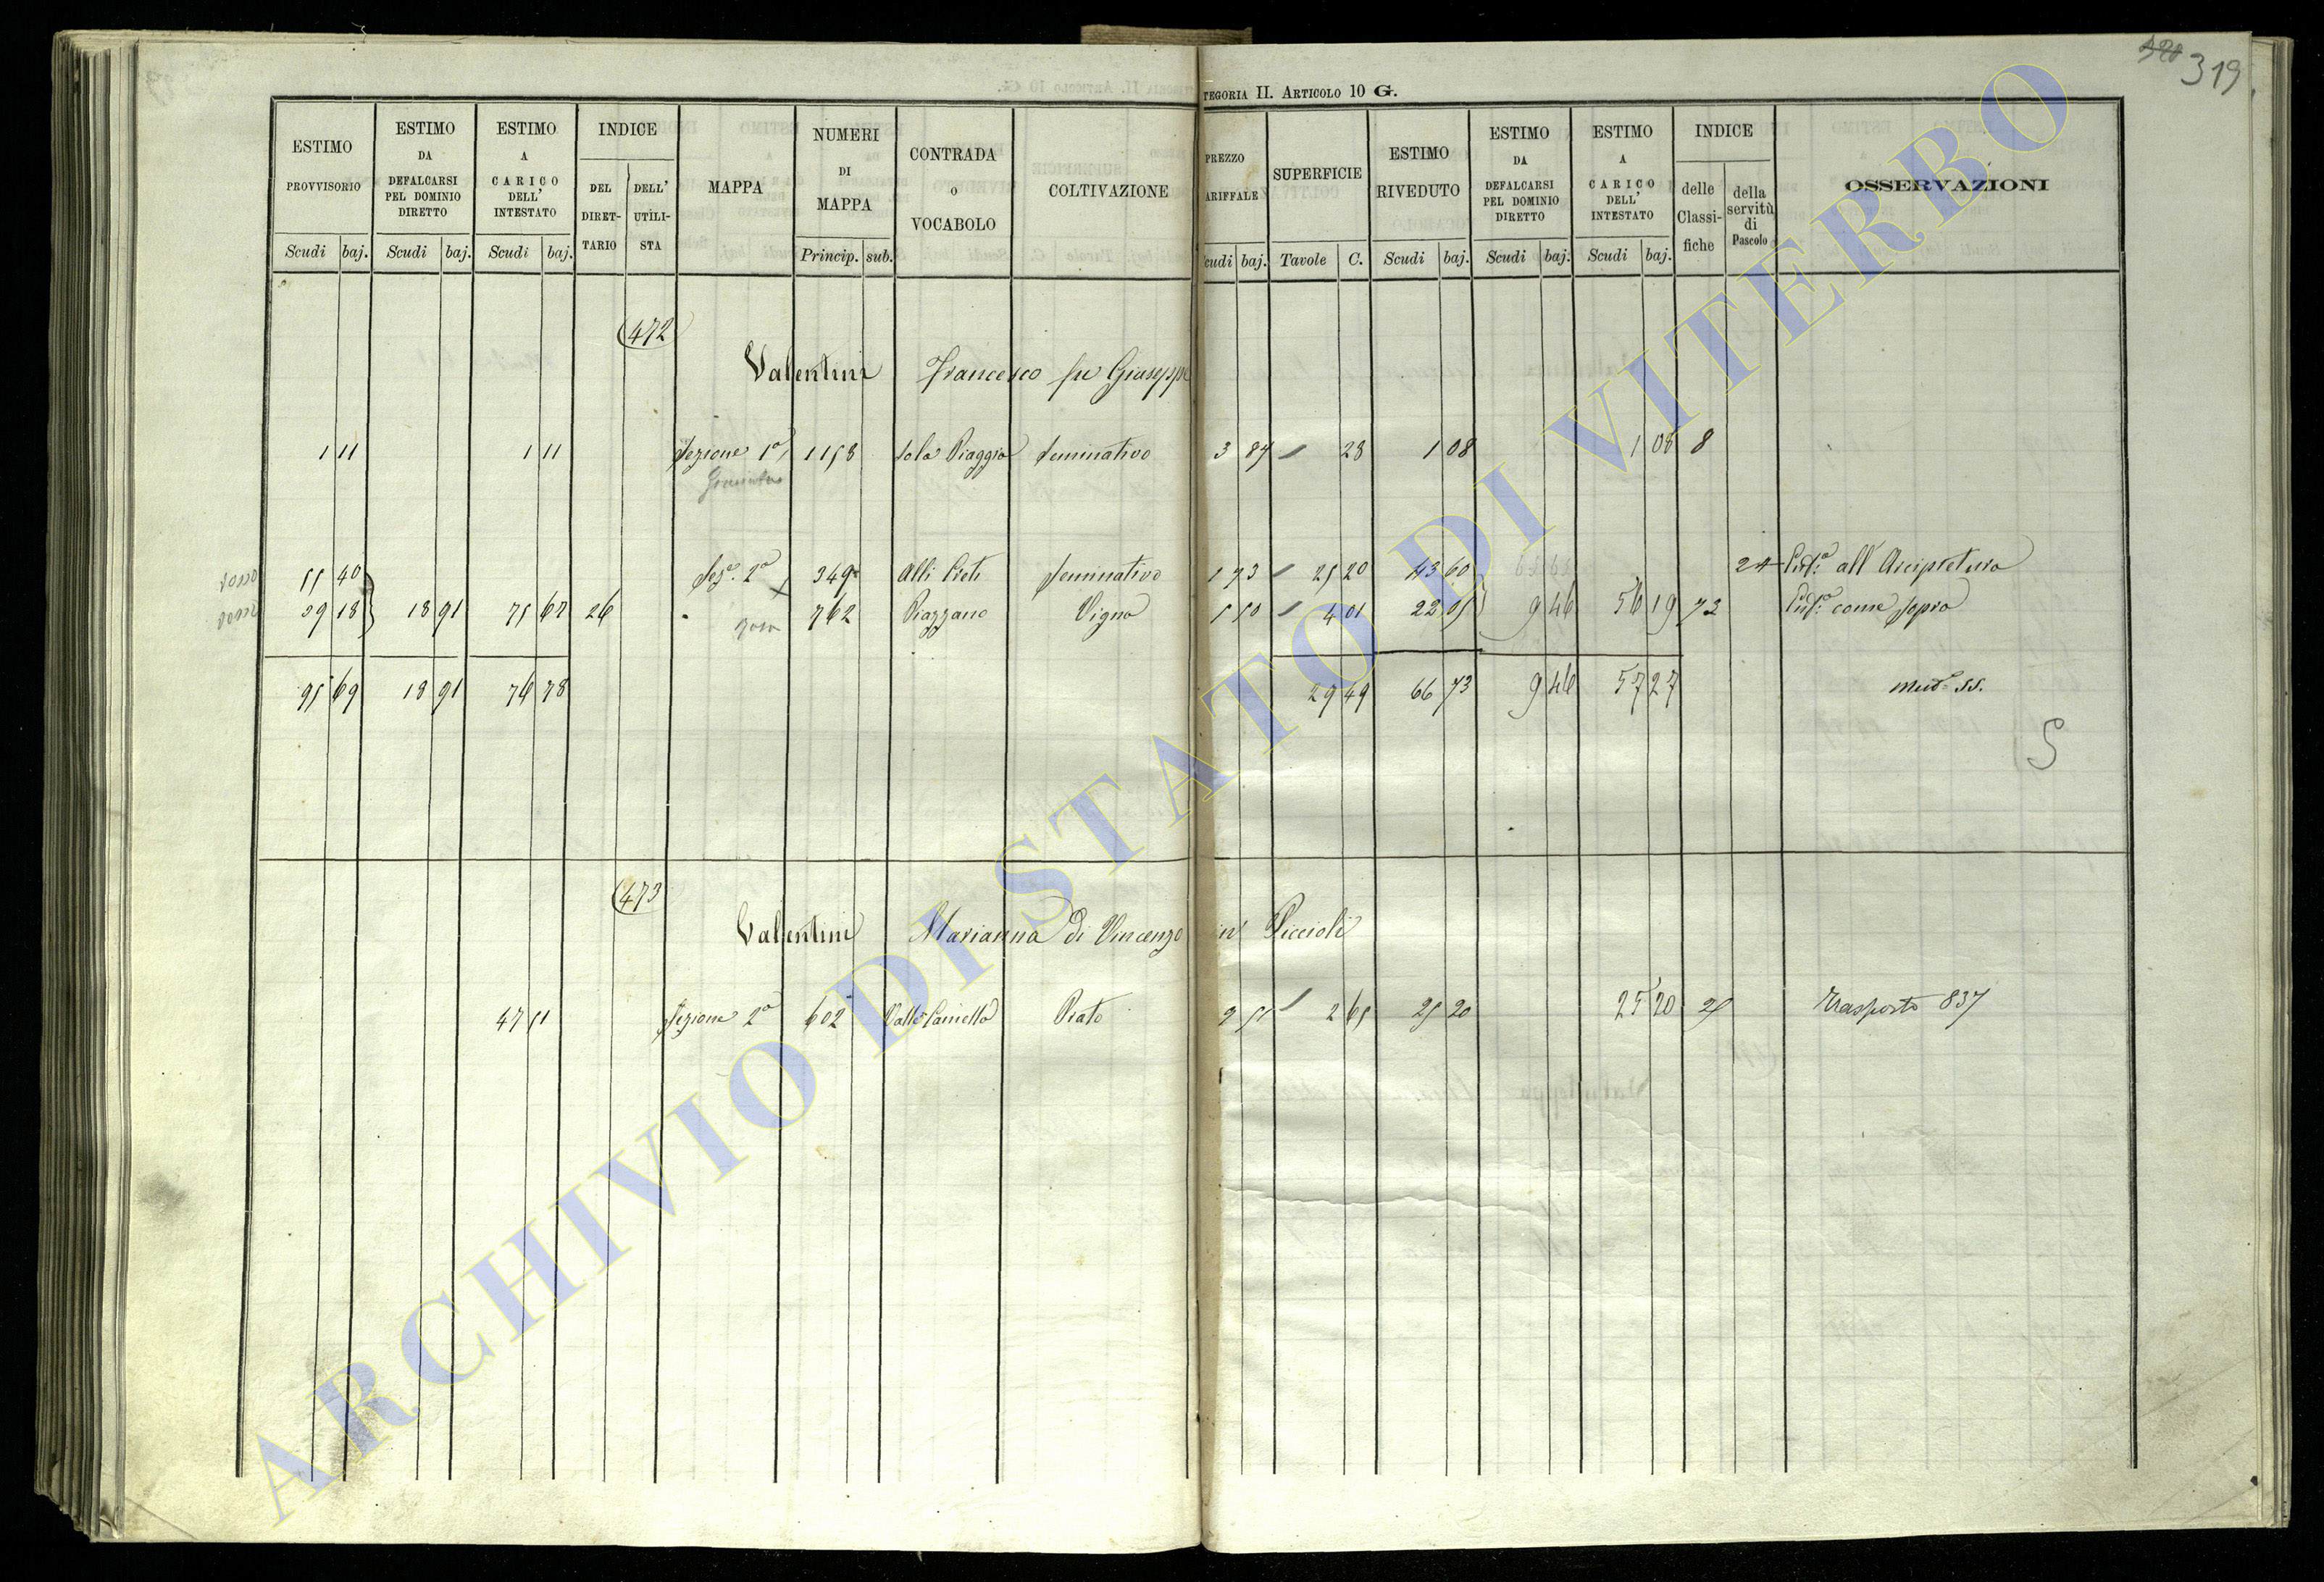 320 319
TEGORIA II. ARTICOLO 10 G.
ESTIMO PROVVISORIO Scudi baj.
ESTIMO DA DEFALCARSI PEL DOMINIO DIRETTO Scudi baj.
ESTIMO A CARICO DELL' INTESTATO Scudi baj.
INDICE DEL DIRETTARIO DELL' UTILISTA
MAPPA
NUMERI DI MAPPA Princip. sub.
CONTRADA O VOCABOLO
COLTIVAZIONE
PREZZO ARIFFALE cudi baj.
SUPERFICIE Tavole C.
ESTIMO RIVEDUTO Scudi baj.
ESTIMO DA DEFALCARSI PEL DOMINIO DIRETTO Scudi baj.
ESTIMO A CARICO DELL' INTESTATO Scudi baj.
INDICE delle Classifiche della servitù di Pascolo
OSSERVAZIONI
472
Valentini Francesco fu Giuseppe
1 11 1 11 Sezione 1a 1158 Piaggia Seminativo 3 87 28 1 08 1 08 8
rosso 55 40 Sez.e 2a 349 Alli Preti Seminativo 1 73 25 20 43 60 24 all' Arcipretura
rosso 39 18 18 91 75 67 26 762 Piazzano Vigna 5 50 4 01 22 05 9 46 56 19 72 come sopra
95 69 18 91 76 78 29 49 66 73 9 46 57 27
473
Valentini Marianna di Vincenzo in Piccioli
47 51 Sezione 2a 602 Prato 9 51 2 65 25 20 25 20 Trasporto 837
ARCHIVIO DI STATO DI VITERBO